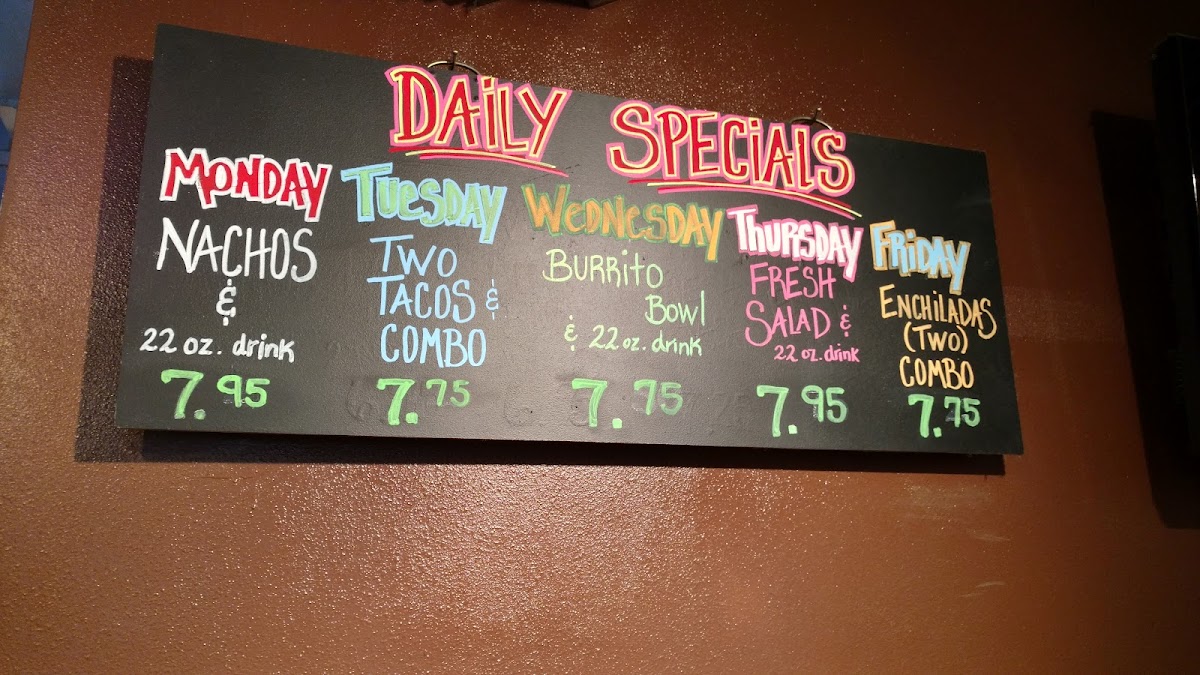 DAiLY SPECiALS
MONDAY
NACHOS
&
22 oz. drink
7.95
TUESDAY
TWO
TACOS &
COMBO
7.75
WEDNESDAY
BURRito
Bowl
& 22 oz. drink
7.75
THURSDAY
FRESH
SALAD &
22 oz. drink
7.95
FRiDAY
ENCHiLADAS
(TWO)
COMBO
7.75